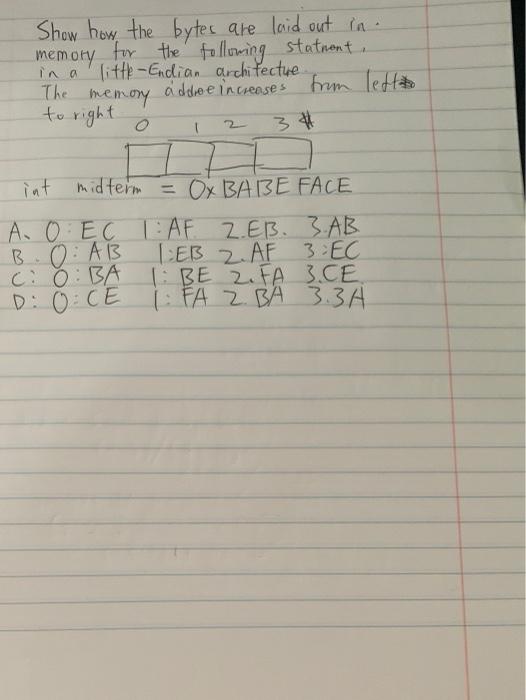 Show how the bytes are laid out in.
memory for the following statment,
in a little-Endian architectue
The memory addree increases from left
to right
0 1 2 3
int midterm = 0xBABE FACE
A. 0:EC 1:AF 2.EB. 3.AB
B. 0:AB 1:EB 2.AF 3:EC
C: 0:BA 1:BE 2.FA 3.CE
D: 0:CE 1:FA 2.BA 3.3A